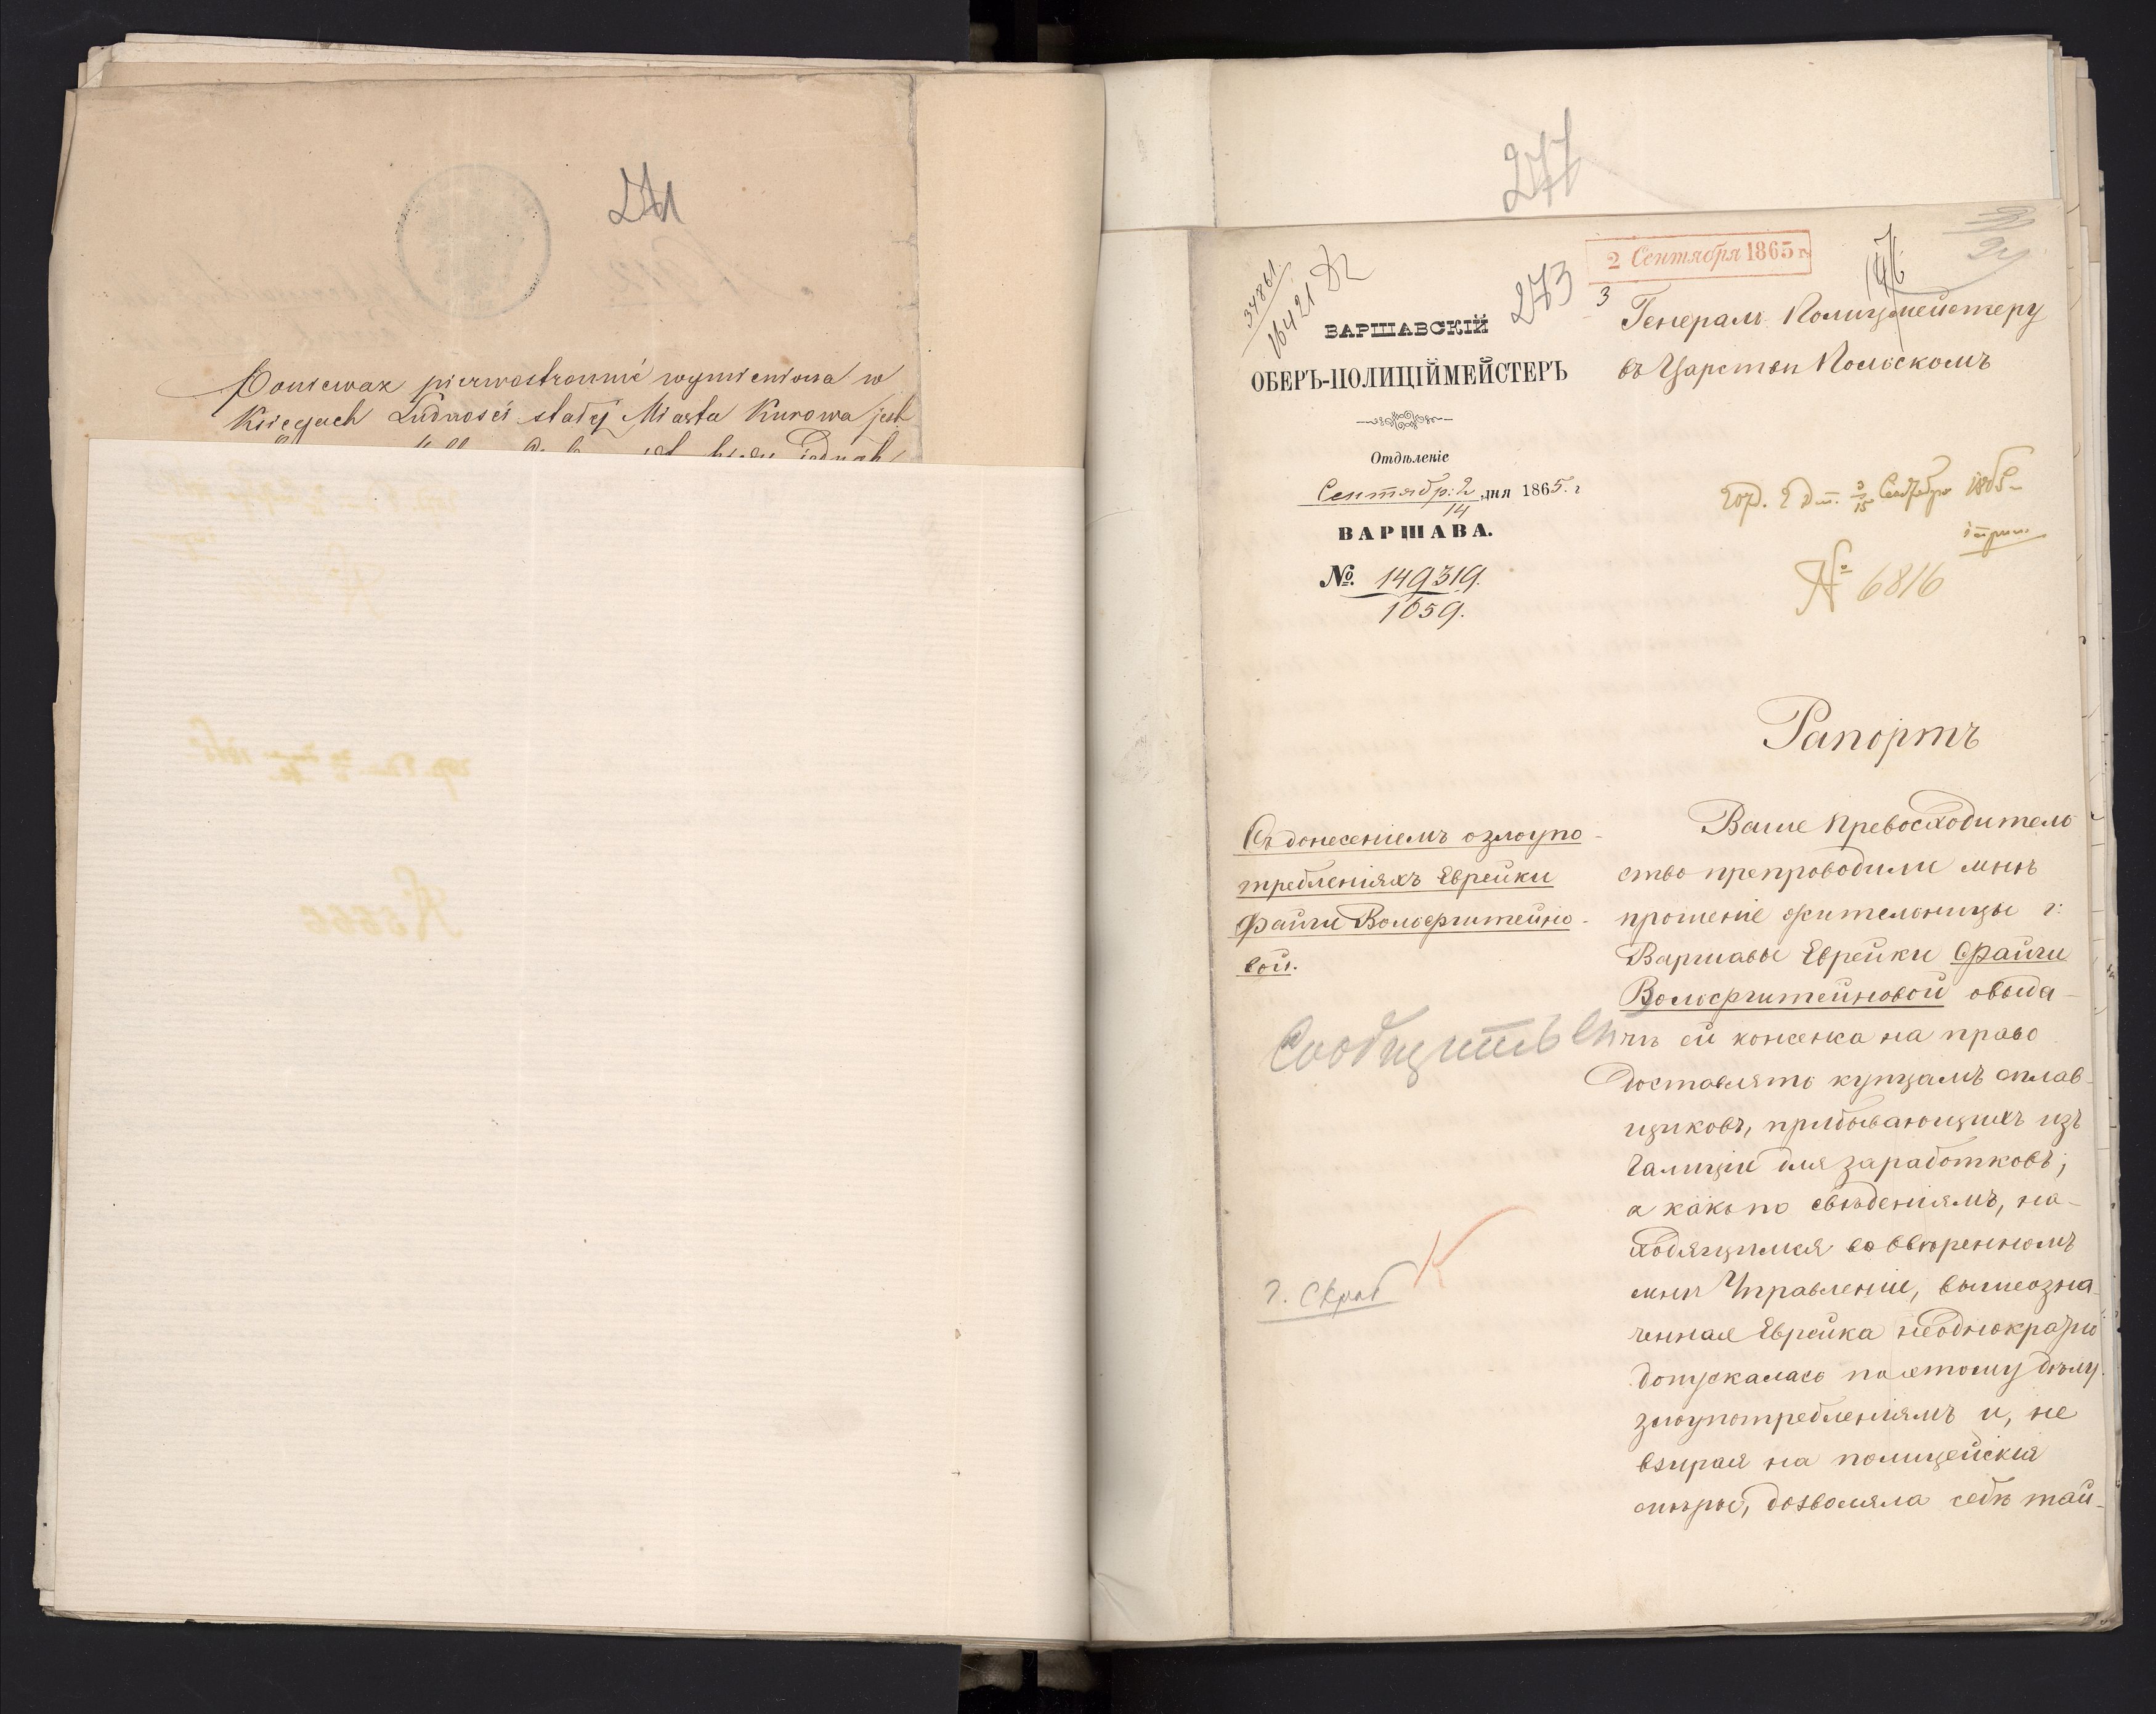 271
Poniewaz pierwostronnie wymieniona w
Księgach Ludności stałej Miasta Kurowa jest
277
34861
16421
273
2 Сентября 1865 г.
ВАРШАВСКІЙ
ОБЕРЪ-ПОЛИЦІЙМЕЙСТЕРЪ
Отдѣленіе
Сентябр: 2/14 дня 1865. г
ВАРШАВА.
№. 149319.
1659.
Генералъ Полицмейстеру
въ Царствѣ Польскомъ
3/15 Сентября 1865
№ 6816
Рапортъ
Съ донесеніемъ о злоупо-
требленіяхъ Еврейки
Файги Вольфштейно-
вой.
Сообщить
Г. Скрыб
Ваше Превосходитель
ство препроводили мнѣ
прошеніе жительницы г:
Варшавы Еврейки Файги
Вольфштейновой о выда-
чѣ ей консенса на право
доставлять купцамъ сплав-
щиковъ, прибывающихъ изъ
Галиціи для заработковъ;
а какъ по свѣденіямъ, на-
ходящимся во ввѣренномъ
мнѣ Управленіи, вышеозна-
ченная Еврейка неоднократно
допускалась по этому дѣлу
злоупотребленіямъ и, не
взирая на полицейскія
мѣры, дозволяла себѣ тай-